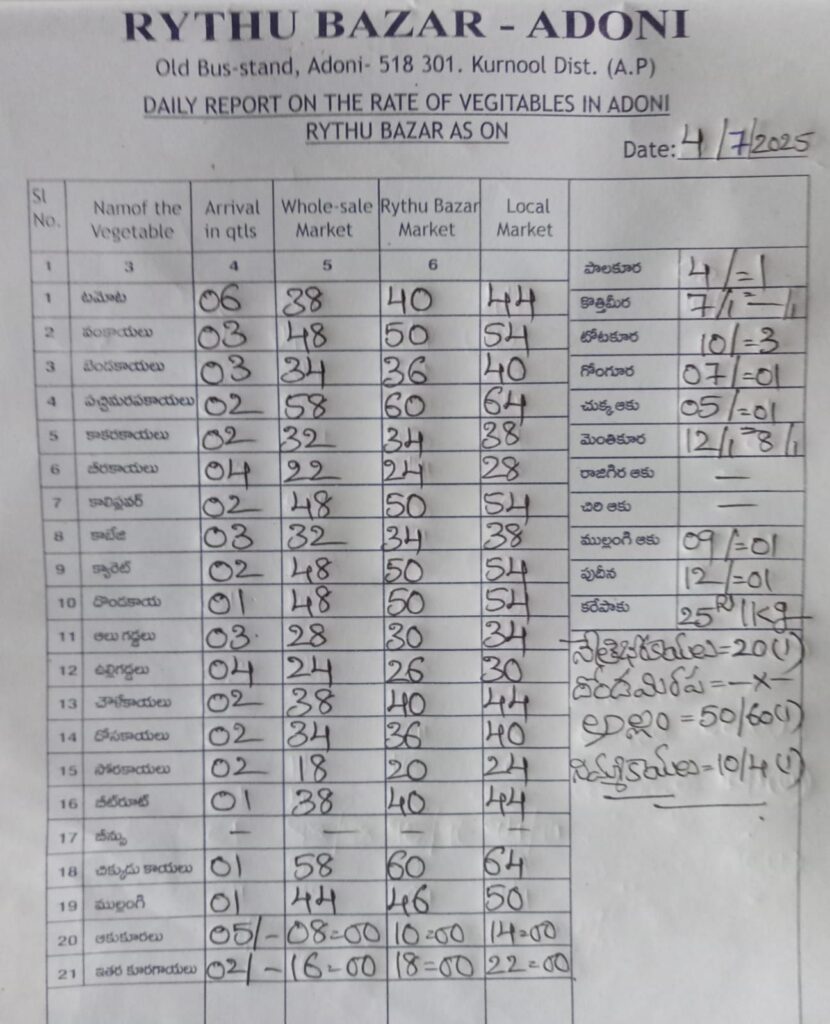 RYTHU BAZAR - ADONI
Old Bus-stand, Adoni- 518 301. Kurnool Dist. (A.P)
DAILY REPORT ON THE RATE OF VEGITABLES IN ADONI
RYTHU BAZAR AS ON
Date: 4/7/2025
Sl No. Namof the Vegetable Arrival in qtls Whole-sale Market Rythu Bazar Market Local Market
1 3 4 5 6 పాలకూర 4/=1
1 టమోట 06 38 40 44 కొత్తిమీర 7/1
2 వంకాయలు 03 48 50 54 టోటకూర 10/=3
3 బెండకాయలు 03 34 36 40 గోంగూర 07/=01
4 పచ్చిమిరపకాయలు 02 58 60 64 చుక్క ఆకు 05/=01
5 కాకరకాయలు 02 32 34 38 మెంతికూర 12/1 = 8/1
6 బీరకాయలు 04 22 24 28 రాజిగిర ఆకు —
7 కాలిఫ్లవర్ 02 48 50 54 చిరి ఆకు —
8 కాబేజి 03 32 34 38 ముల్లంగి ఆకు 09/=01
9 క్యారెట్ 02 48 50 54 పుదీన 12/=01
10 దొండకాయ 01 48 50 54 కరేపాకు 25 Rs 1kg
11 ఆలు గడ్డలు 03 28 30 34 =20(1)
12 ఉల్లిగడ్డలు 04 24 26 30 =-x-
13 02 38 40 44
14 దోసకాయలు 02 34 36 40 అల్లం =50/60(1)
15 సోరకాయలు 02 18 20 24 నిమ్మకాయలు=10/4(1)
16 బీట్‌రూట్ 01 38 40 44
17 బీన్సు — — — —
18 చిక్కుడు కాయలు 01 58 60 64
19 ముల్లంగి 01 44 46 50
20 ఆకుకూరలు 05/- 08=00 10=00 14=00
21 ఇతర కూరగాయలు 02/- 16=00 18=00 22=00